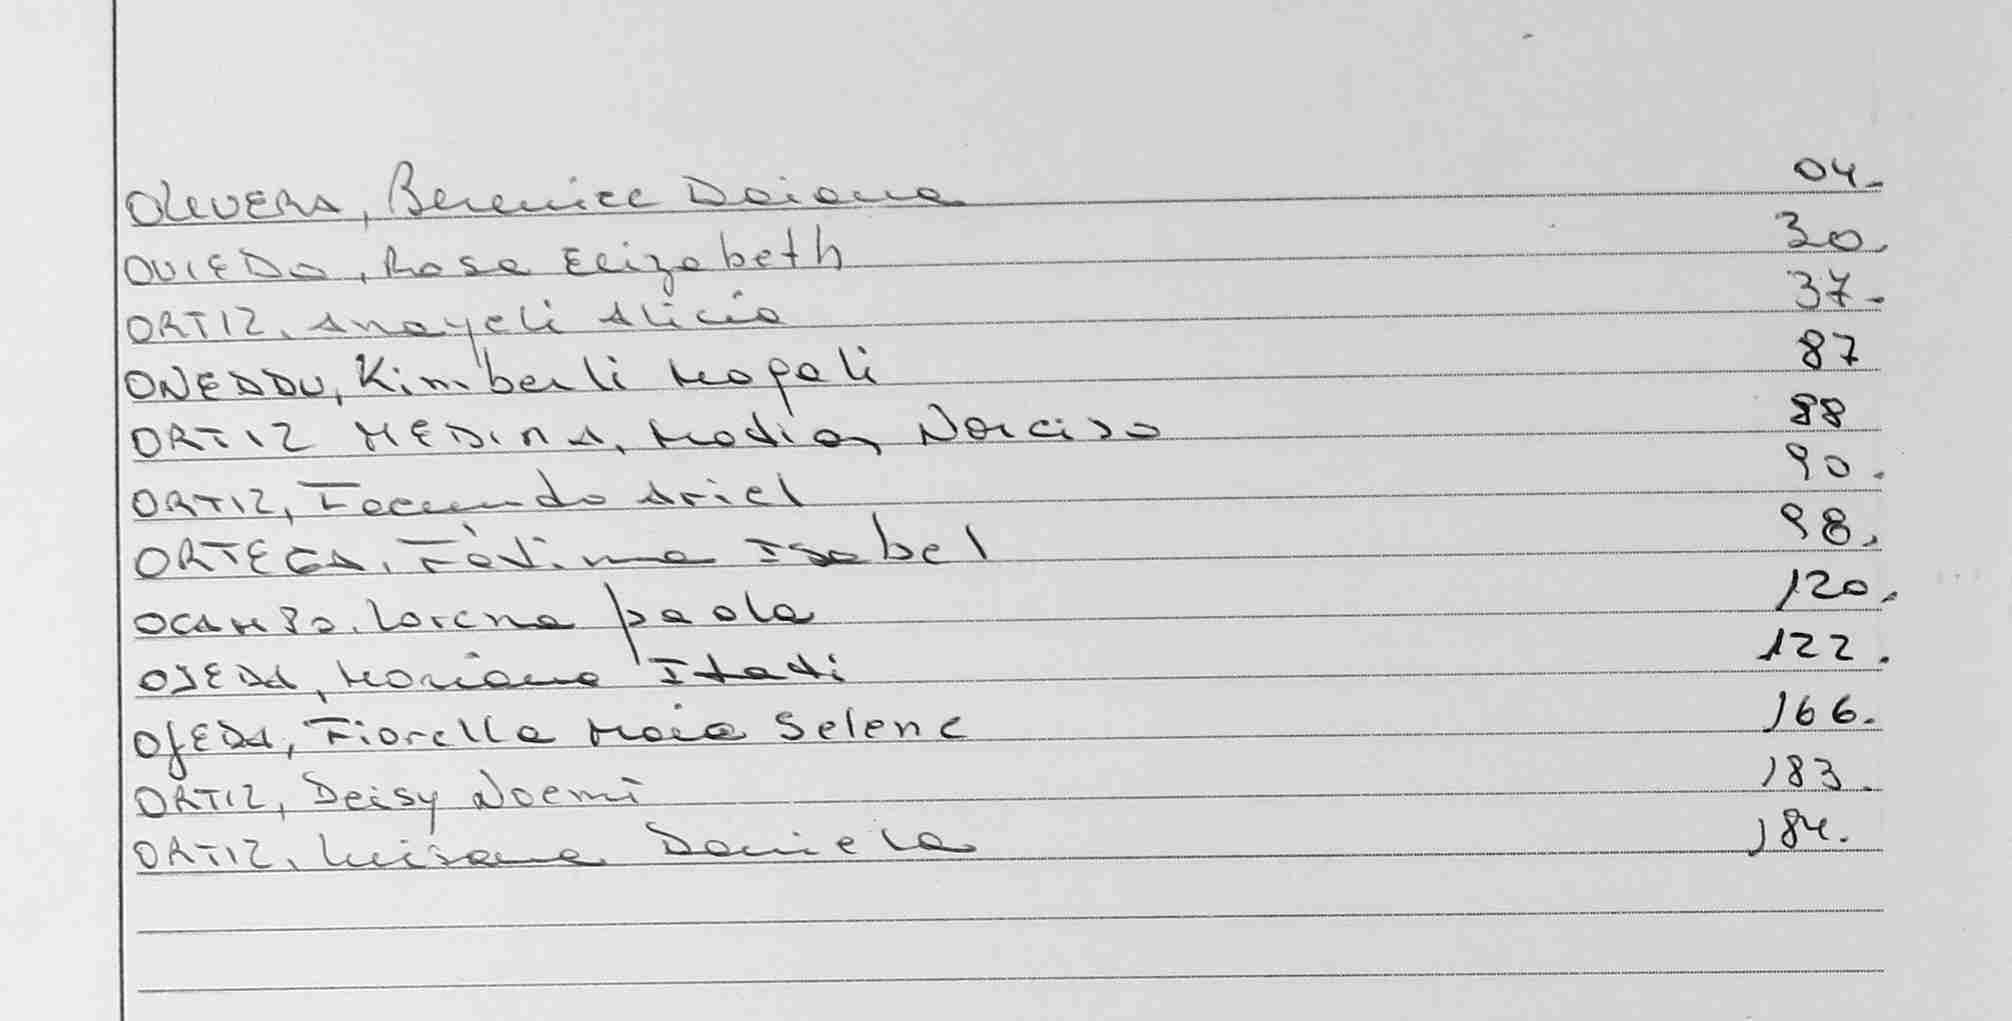 OLIVERA, Berenice Daiana 04.
OVIEDO, Rosa Elizabeth 30.
ORTIZ, Anayeli Alicia 37.
ONEDDU, Kimberli Magali 87
ORTIZ MEDINA, Matias Narciso 88
ORTIZ, Facundo Ariel 90.
ORTEGA, Fàtima Isabel 98.
OCAMPO, Lorena paola 120.
OJEDA, Mariana Itati 122.
OJEDA, Fiorella Maia Selene 166.
ORTIZ, Deisy Noemi 183.
ORTIZ, Luisana Daniela 184.